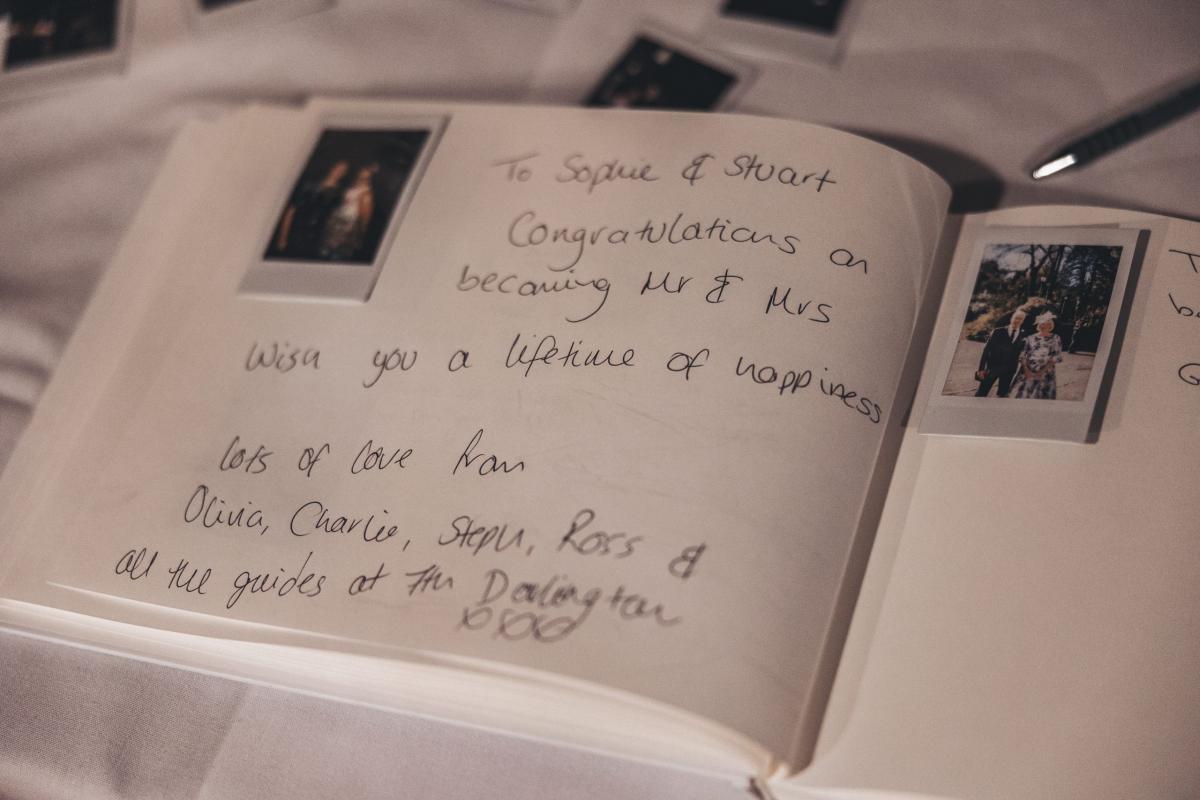 To Sophie & Stuart
Congratulations on
becoming Mr & Mrs
Wish you a lifetime of happiness
lots of love from
Olivia, Charlie, Steph, Ross &
all the guides at 7th Darlington
xoxo
T
be
G